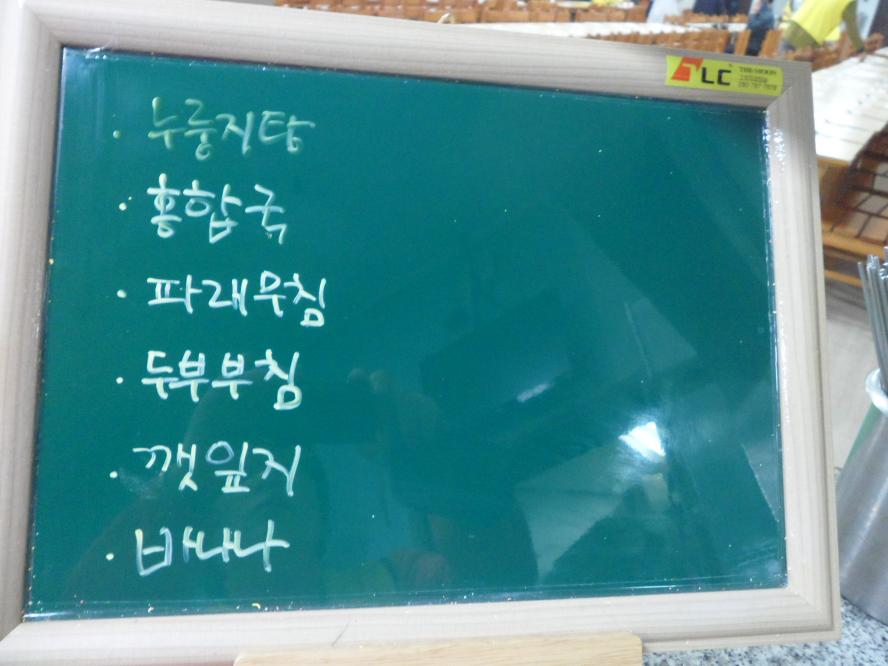 · 누룽지탕
· 홍합국
· 파래무침
· 두부부침
· 깻잎지
· 바나나
LC
THE MOON